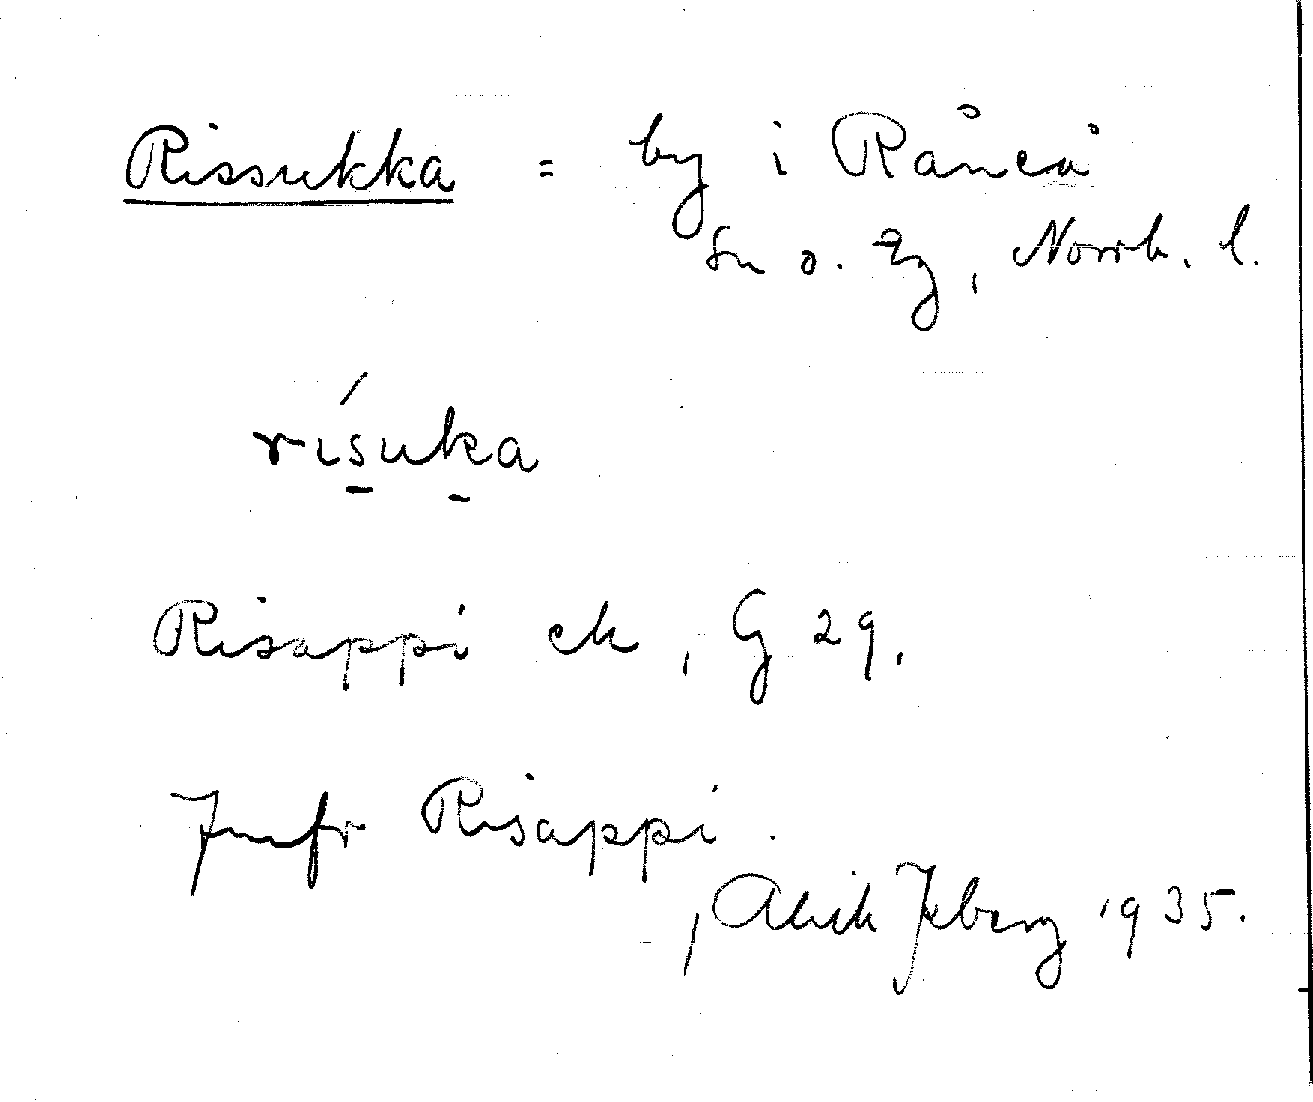 Rissukka = by i Råneå
sn o. tg, Norrb. l.
rísuka
Risappi ek, G 29.
Jmfr Risappi.
, Alvik 1935.